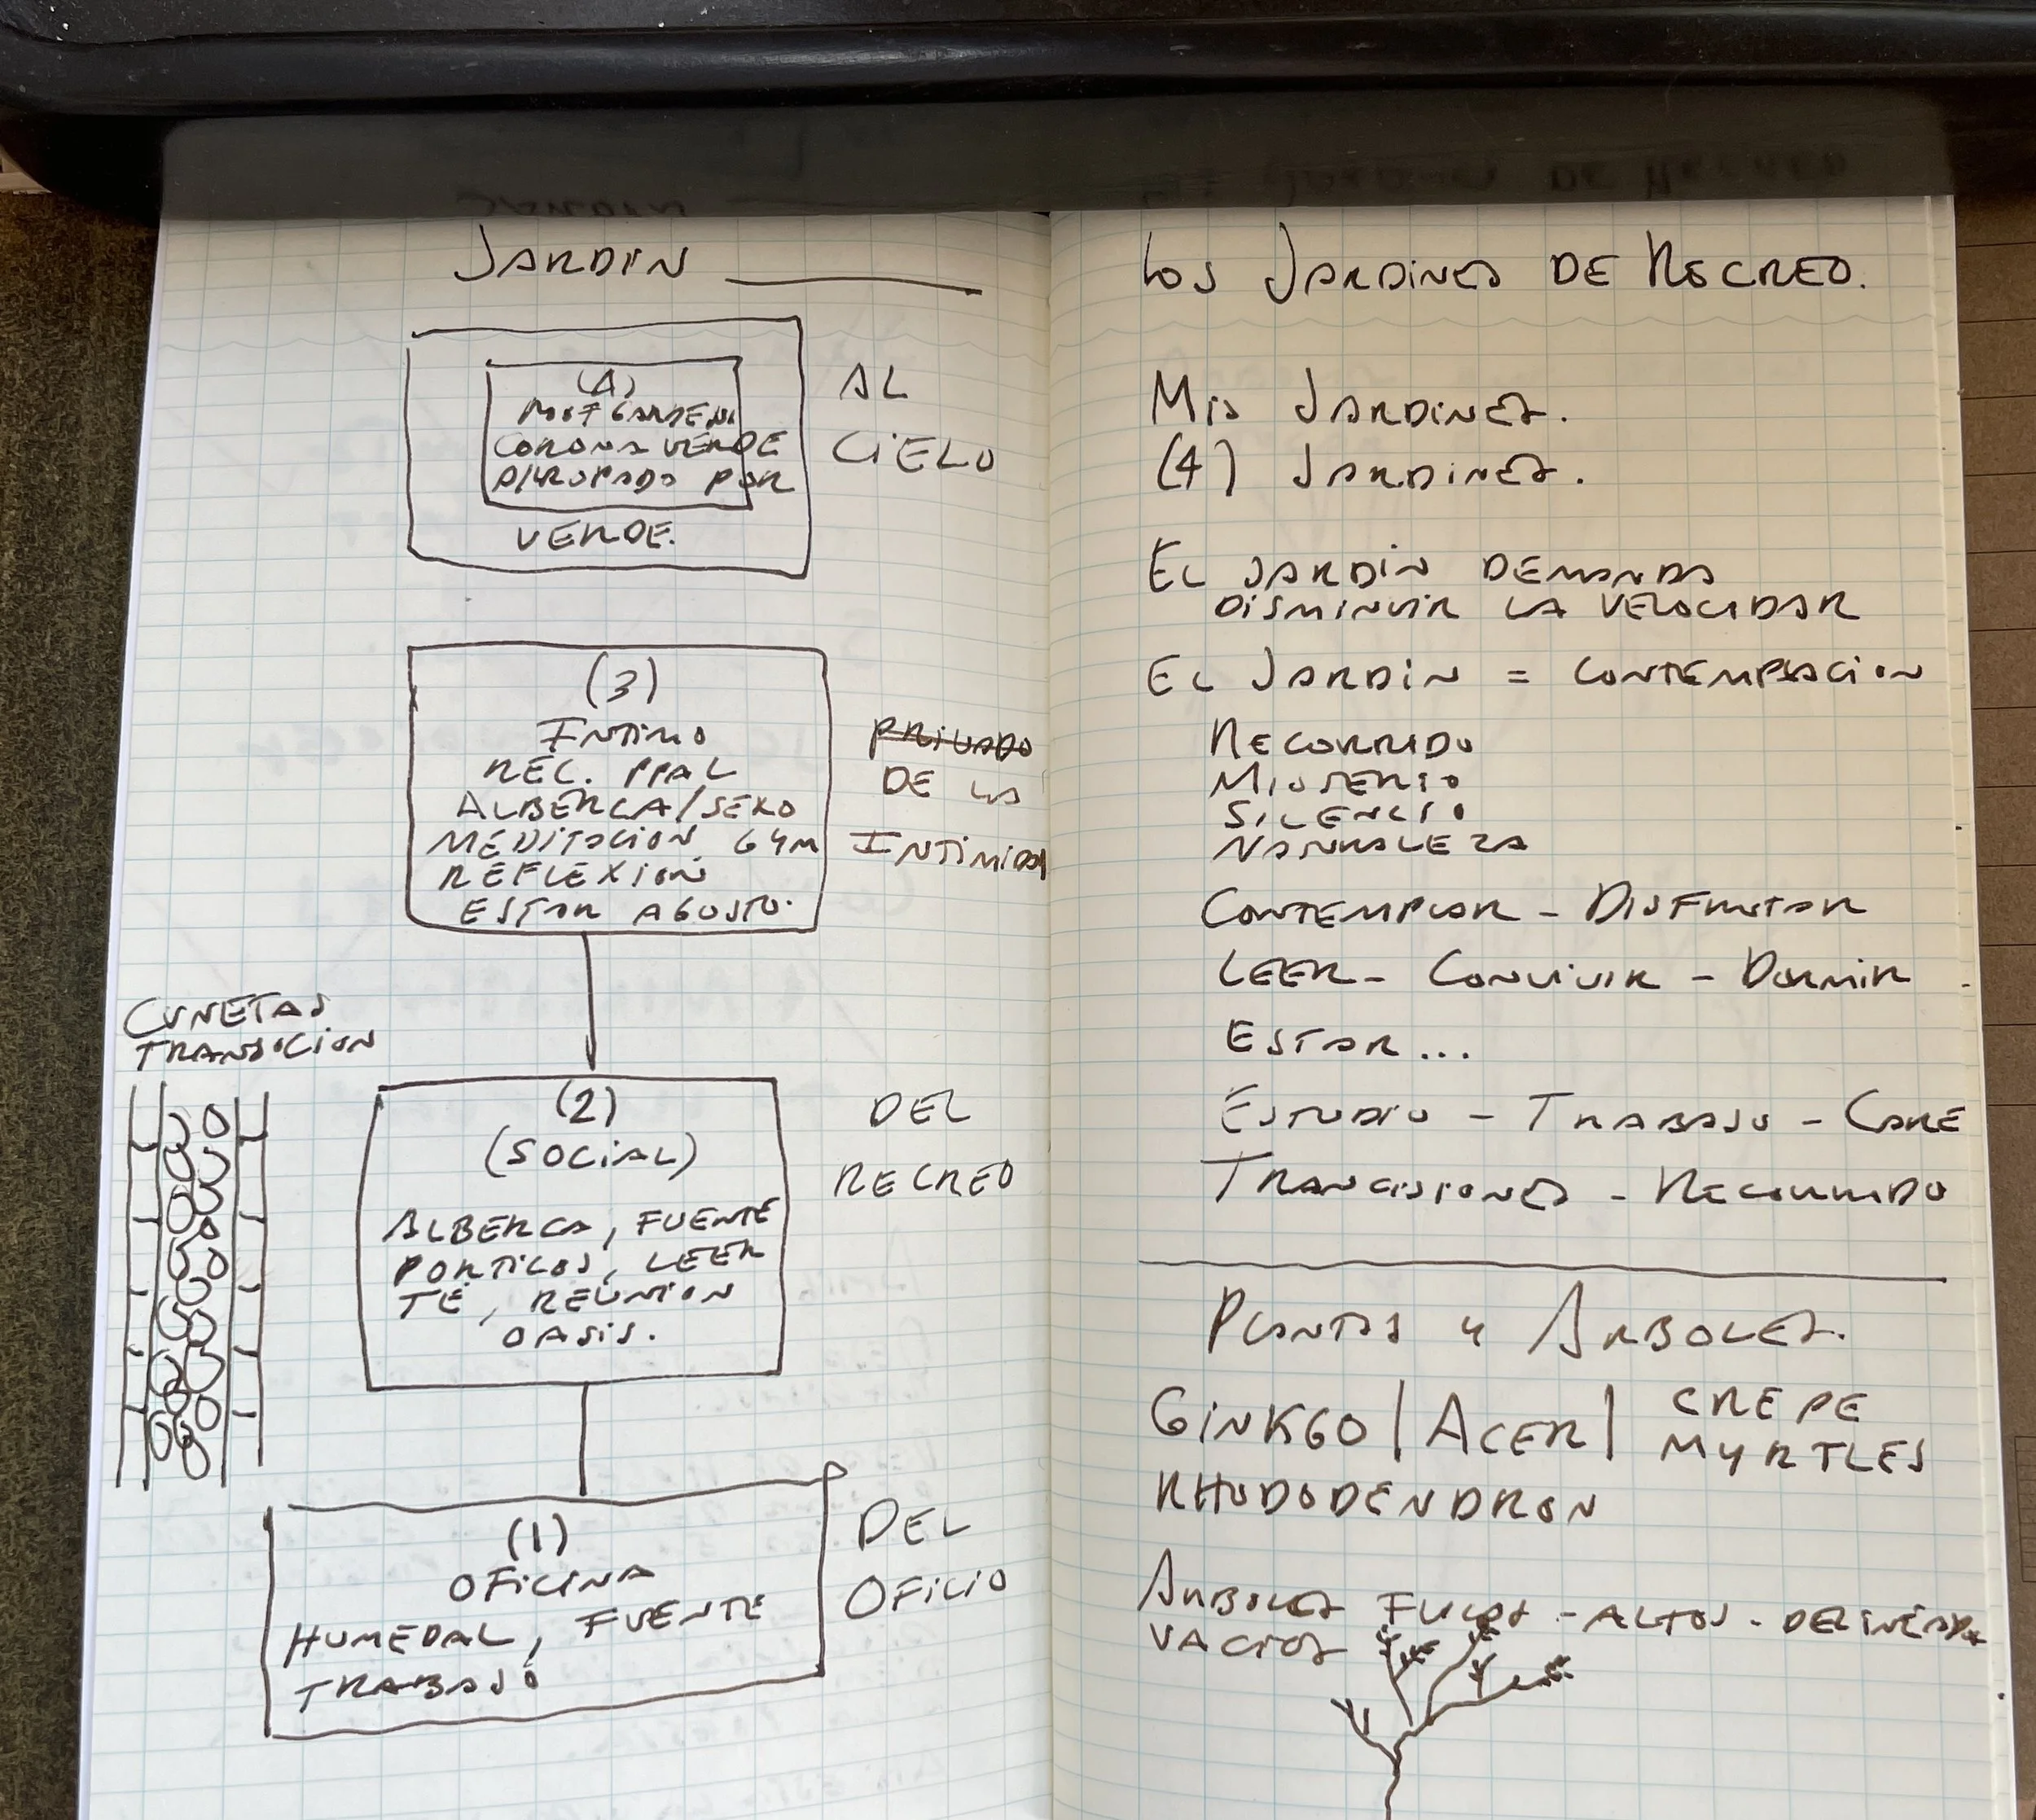 JARDIN
(4)
ROOF GARDEN
CORONA VERDE
ARROPADO POR
VERDE.
AL
CIELO
(3)
INTIMO
REC. PPAL
ALBERCA/SEXO
MEDITACION GYM
REFLEXION
ESTAR AGUSTO.
PRIVADO
DE LA
INTIMIDAD
CUNETAS
TRANSICION
(2)
(SOCIAL)
ALBERCA, FUENTE
PORTICOS, LEER
TÉ, REUNION
OASIS.
DEL
RECREO
(1)
OFICINA
HUMEDAL, FUENTE
TRABAJO
DEL
OFICIO
LOS JARDINES DE RECREO.
MIS JARDINES.
(4) JARDINES.
EL JARDIN DEMANDA
DISMINUIR LA VELOCIDAD
EL JARDIN = CONTEMPLACION
RECORRIDO
MISTERIO
SILENCIO
NATURALEZA
CONTEMPLAR - DISFRUTAR
LEER - CONVIVIR - DORMIR
ESTAR...
ESTUDIO - TRABAJO - CORE
TRANCISIONES - RECORRIDO
PLANTAS Y ARBOLES.
GINKGO | ACER | CREPE
MYRTLES
RHODODENDRON
ARBOLES - ALTOS - DELINEADOS
VACIOS